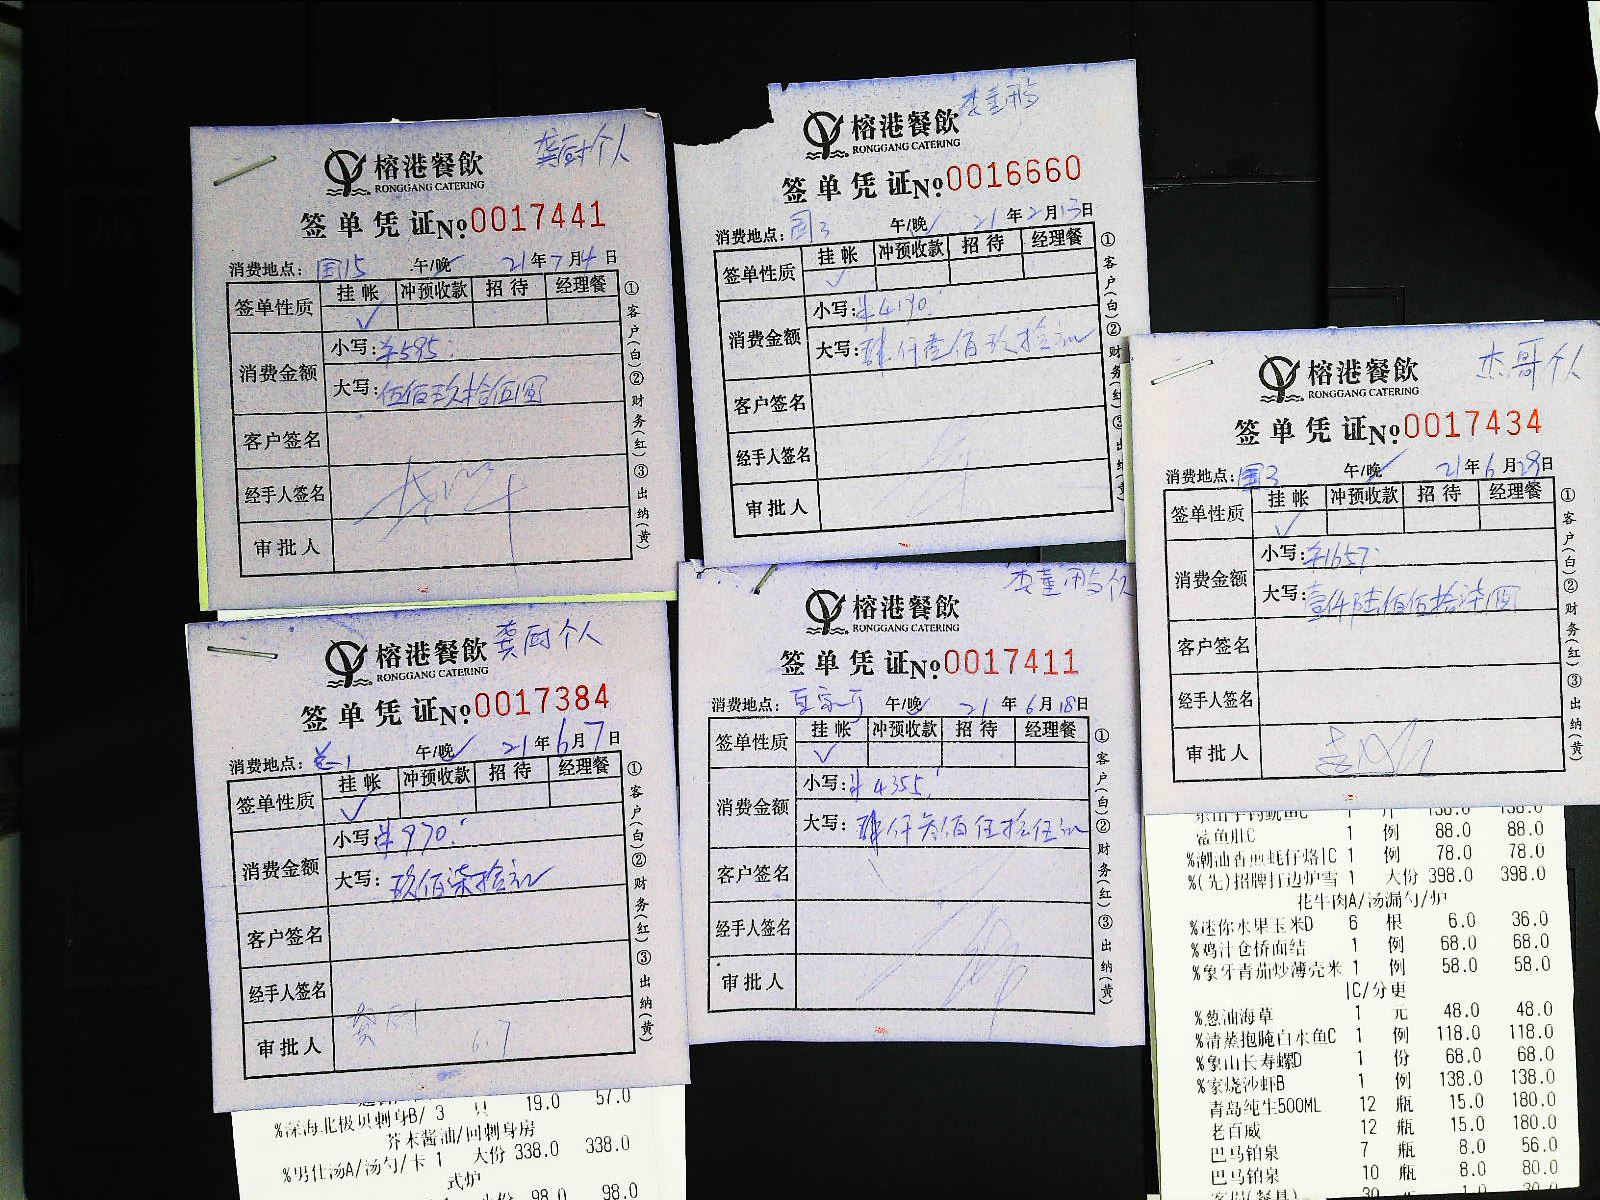 龚厨个人
榕港餐飲
RONGGANG CATERING
签单凭证 No:0017441
消费地点: 国15 午/晚 21年7月4日
签单性质 挂帐 冲预收款 招待 经理餐
消费金额
小写: ¥595.
大写: 伍佰玖拾伍圆
客户签名
经手人签名
审批人
①客户(白)②财务(红)③出纳(黄)
李董
榕港餐飲
RONGGANG CATERING
签单凭证 No:0016660
消费地点: 国3 午/晚 21年2月13日
签单性质 挂帐 冲预收款 招待 经理餐
消费金额
小写: ¥4190.
大写: 肆仟壹佰玖拾元
客户签名
经手人签名
审批人
①客户(白)②财务(红)③出纳(黄)
杰哥个人
榕港餐飲
RONGGANG CATERING
签单凭证 No:0017434
消费地点: 国3 午/晚 21年6月28日
签单性质 挂帐 冲预收款 招待 经理餐
消费金额
小写: ¥1657.
大写: 壹仟陆佰伍拾柒圆
客户签名
经手人签名
审批人
①客户(白)②财务(红)③出纳(黄)
龚厨个人
榕港餐飲
RONGGANG CATERING
签单凭证 No:0017384
消费地点: 午/晚 21年6月7日
签单性质 挂帐 冲预收款 招待 经理餐
消费金额
小写: ¥970.
大写: 玖佰柒拾元
客户签名
经手人签名
审批人 龚厨 6.7
①客户(白)②财务(红)③出纳(黄)
李董
榕港餐飲
RONGGANG CATERING
签单凭证 No:0017411
消费地点: 午/晚 21年6月18日
签单性质 挂帐 冲预收款 招待 经理餐
消费金额
小写: ¥4355.
大写: 肆仟叁佰伍拾伍元
客户签名
经手人签名
审批人
①客户(白)②财务(红)③出纳(黄)
19.0 57.0
%深海北极贝刺身B/ 3 只
芥末酱油/回刺身房
%男仕汤A/汤勺/卡 1 大份 338.0 338.0
式炉
98.0 98.0
象山手钓鱿鱼C 1 斤 138.0 138.0
鲨鱼肚C 1 例 88.0 88.0
%潮汕香煎蚝仔烙IC 1 例 78.0 78.0
%(先)招牌打边炉雪 1 大份 398.0 398.0
花牛肉A/汤漏勺/炉
%迷你水果玉米D 6 根 6.0 36.0
%鸡汁仓桥面结 1 例 68.0 68.0
%象牙青茄炒薄壳米 1 例 58.0 58.0
IC/分更
%葱油海草 1 元 48.0 48.0
%清蒸抱腌白水鱼C 1 例 118.0 118.0
%象山长寿螺D 1 份 68.0 68.0
%家烧沙虾B 1 例 138.0 138.0
青岛纯生500ML 12 瓶 15.0 180.0
老百威 12 瓶 15.0 180.0
巴马铂泉 7 瓶 8.0 56.0
巴马铂泉 10 瓶 8.0 80.0